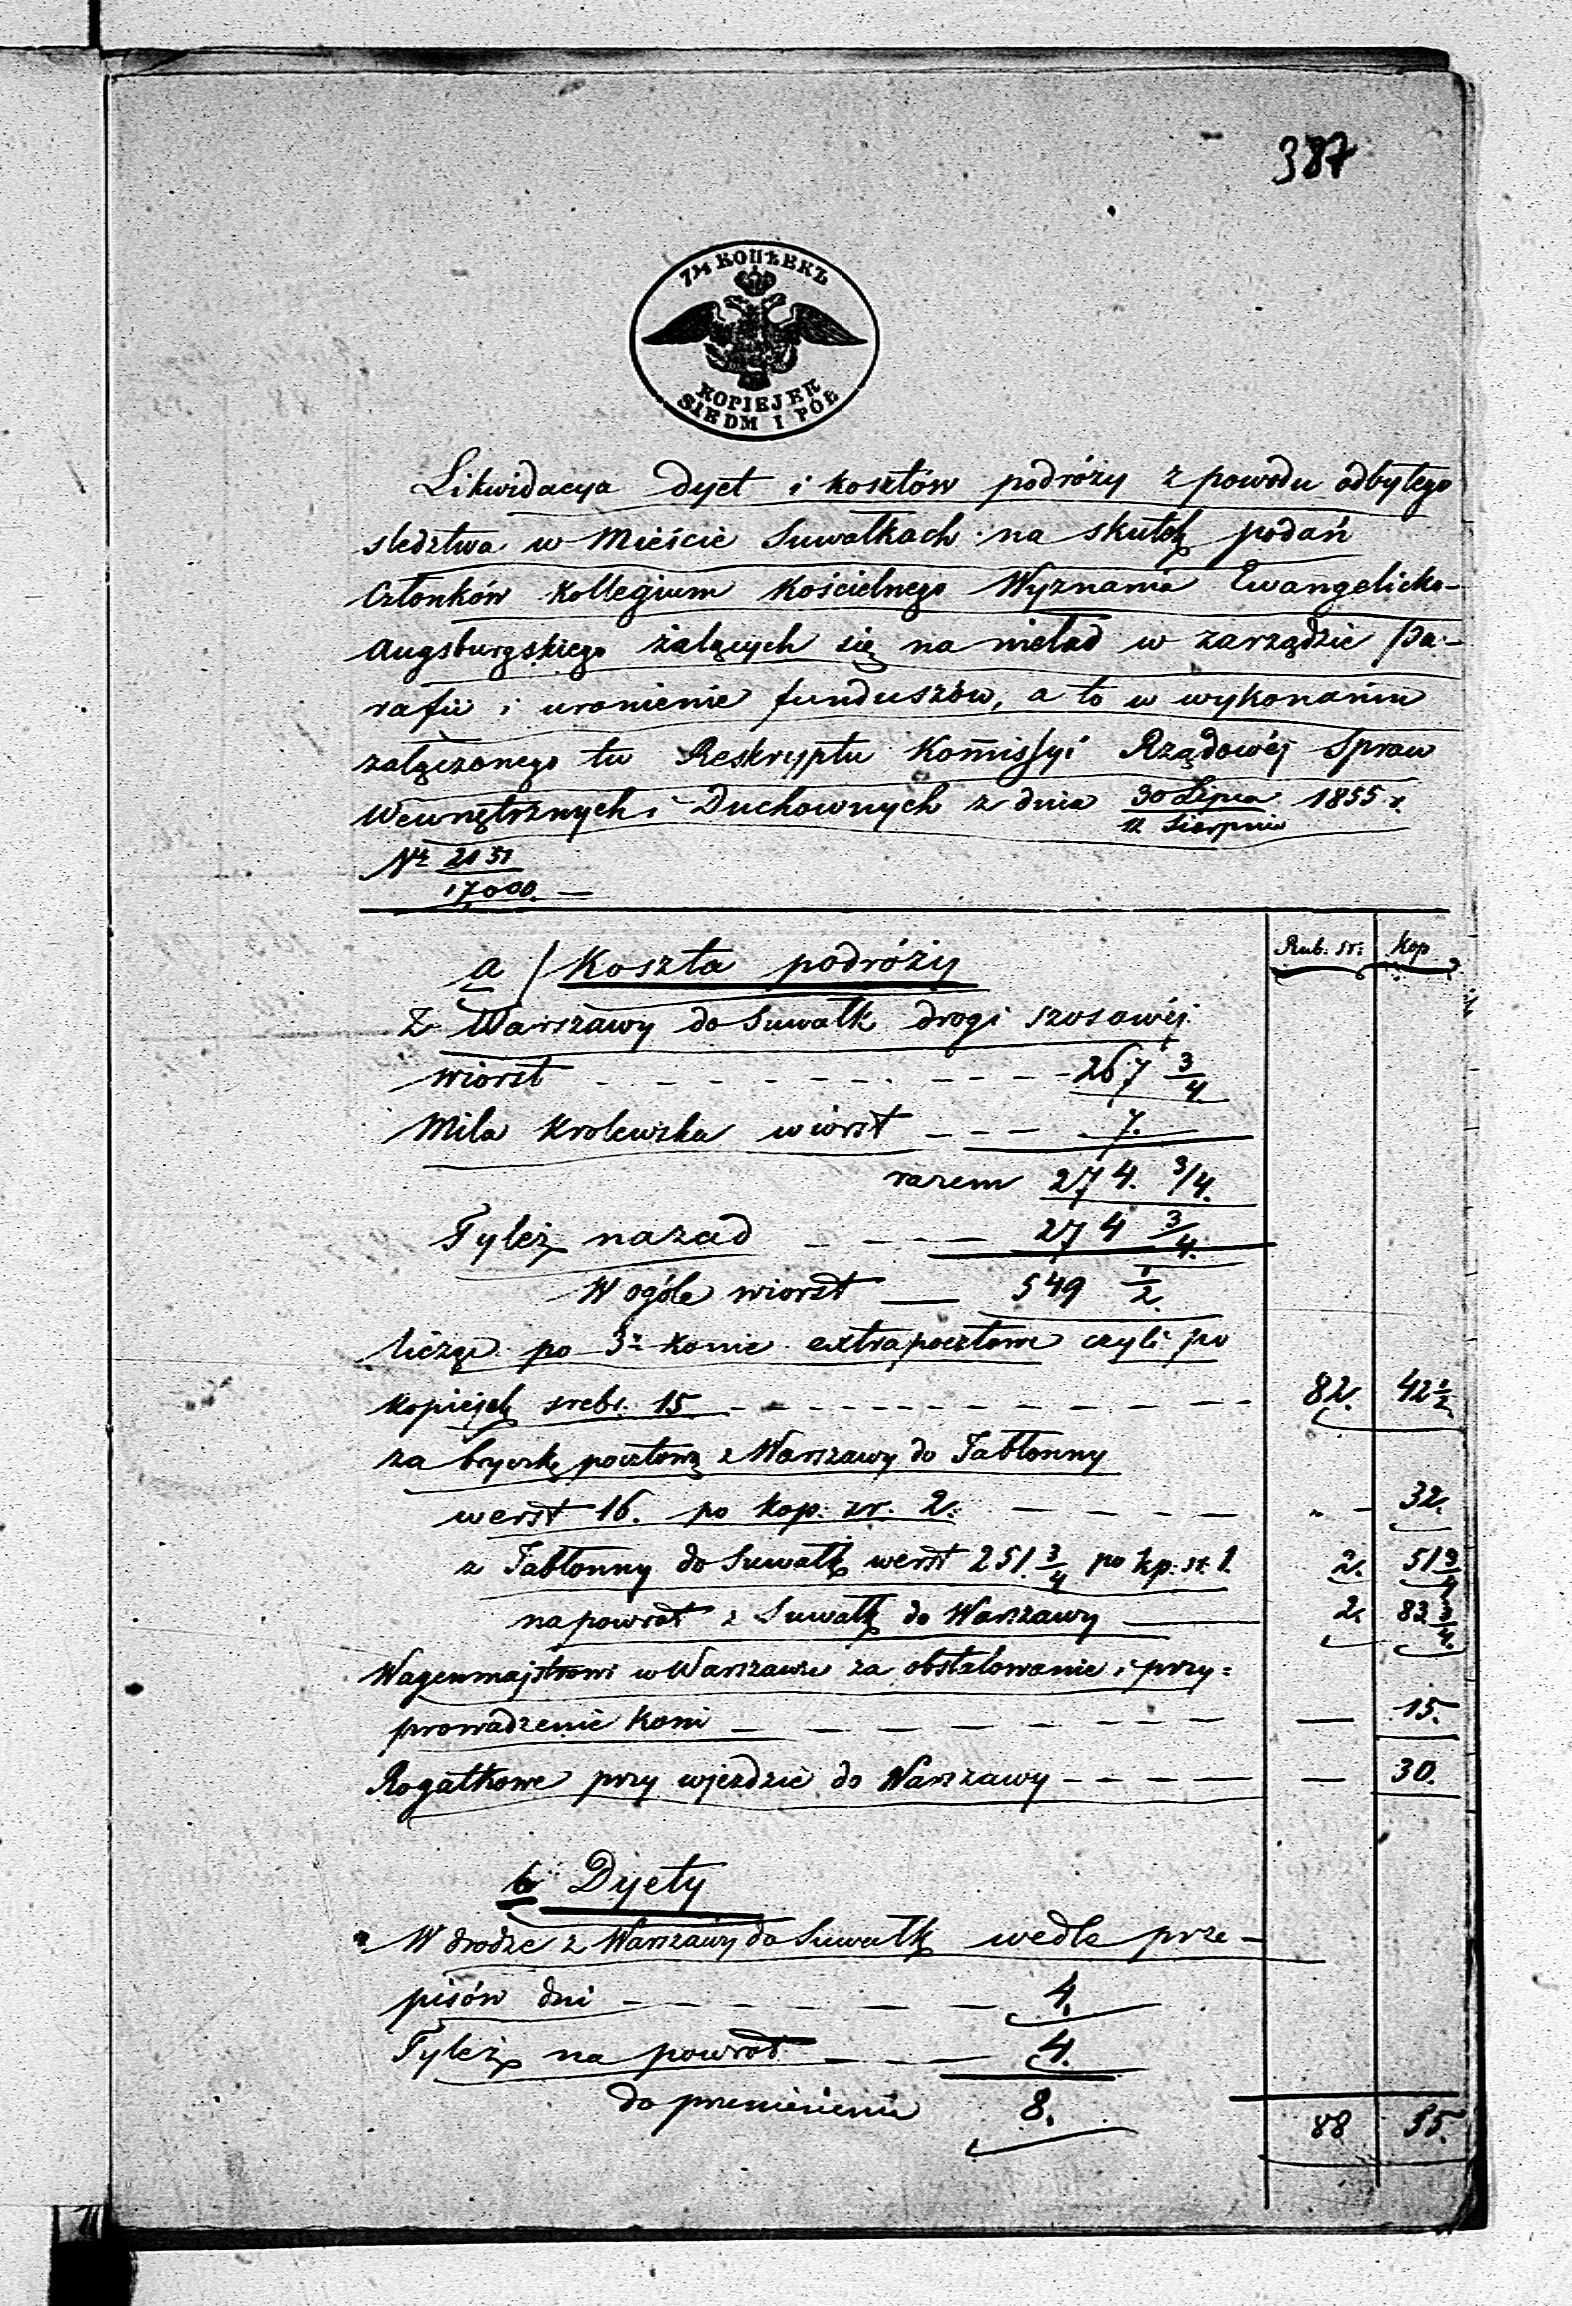 387
7½ КОПѢЕКЪ
KOPIEJEK
SIEDM I PÓŁ
Likwidacya dyet i kosztów podróży z powodu odbytego
sledztwa w Mieście Suwałkach na skutek podań
Członków Kollegium Kościelnego Wyznania Ewangelicko-
Augsburgskiego żalących się na nieład w zarządzie Pa-
rafii i uronienie funduszów, a to w wykonaniu
załączonego tu Reskryptu Kommissyi Rządowéj Spraw
Wewnętrznych i Duchownych z dnia 30 Lipca / 12 Sierpnia 1855 r.
Nr 2131 / 17000. —
Rub. sr. Kop
a/ Koszta podróży
Z Warszawy do Suwałk drogi szosowéj
wiorst - - - - - - - - 267 3/4
Mila Krolewska wiorst - - - 7.
razem 274. 3/4.
Tyleż nazad - - - - 274 3/4.
W ogóle wiorst — 549 1/2
licząc po 3 konie extrapocztowe czyli po
kopiejek srebr. 15 - - - - - - - - - 82. 42 1/2
za bryczkę pocztową z Warszawy do Jabłonny
werst 16. po kop. sr. 2. - - - - - „ - 32.
z Jabłonny do Suwałk werst 251. 3/4 po kp. sr. 1. 2. 51 3/4
napowrót z Suwałk do Warszawy — 2. 83 3/4.
Wagenmajstrowi w Warszawie za obstalowanie i przy=
prowadzenie koni - - - - - - - — 15.
Rogatkowe przy wjezdzie do Warszawy - - - - — 30.
b Dyety
W drodze z Warszawy do Suwałk wedle prze-
pisów dni - - - - - - 4.
Tyleż na powrót - - - 4.
do przeniesienia 8. 88 55.